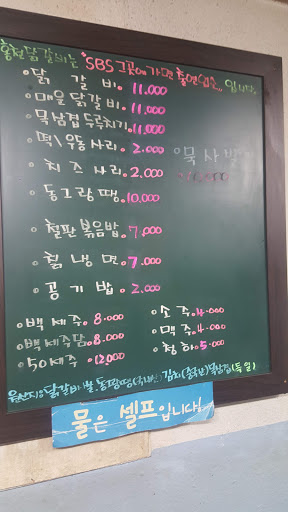 홍천닭갈비는 "SBS 그곳에 가면 출연업소" 입니다.
닭 갈 비 11.000
매운 닭갈비 11.000
목삼겹 두루치기 11.000
떡 우동 사리 2.000
치 즈 사 리 2.000
동 그 랑 땡 10.000
철판 볶음밥 7.000
칡 냉 면 7.000
공 기 밥 2.000
묵 사 발
백 세 주 8.000
백세주담 8.000
50세주 12.000
소 주 4.000
맥 주 4.000
청 하 5.000
원산지 닭갈비 동그랑땡(국내산) 김치(중국산) 목삼겹(독일)
물은 셀프입니다!